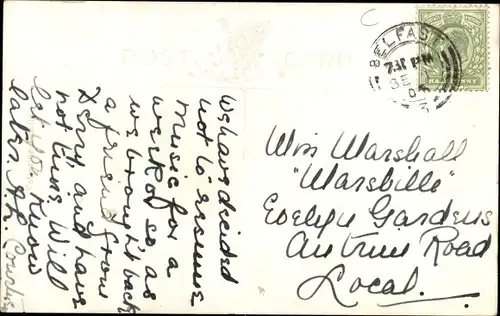 We have decided
not to resume
Music for a
week or so as
we brought back
a friend from
Derry and have
not time. Will
let you know
later. A.L. Courtney
BELFAST
7.30 PM
SE
Wm Marshall
"Marsbille"
Evelyn Gardens
Antrim Road
Local.